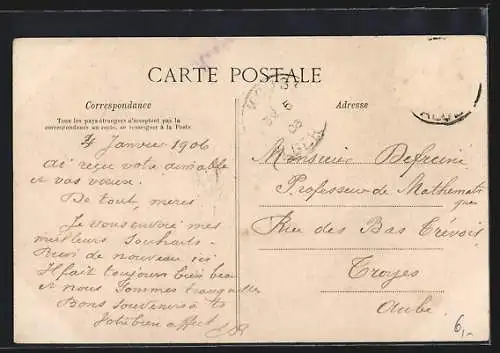 CARTE POSTALE
Correspondance
Tous les pays étrangers n'acceptent pas la
correspondance au recto, se renseigner à la Poste
Adresse
4 Janvier 1906
Ai reçu votre aimable
et vos vœux.
De tout, merci
Je vous envoie mes
meilleurs souhaits.
de nouveau ici
Il fait toujours bien beau
et nous sommes tranquilles
Bons souvenirs à
Votre bien affect
Monsieur
Professeur de Mathemati
ques
Rue des Bas Trévois
Troyes
Aube
6,-